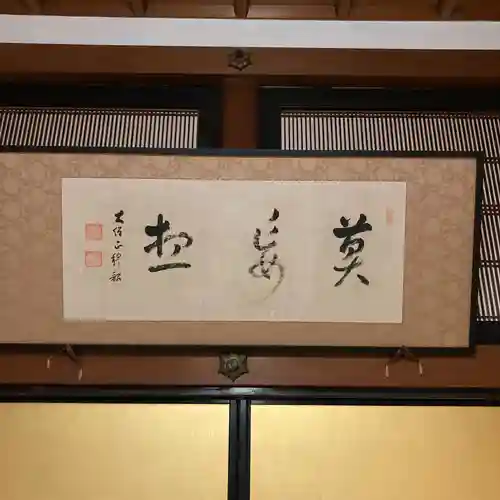 莫妄想
大僧正